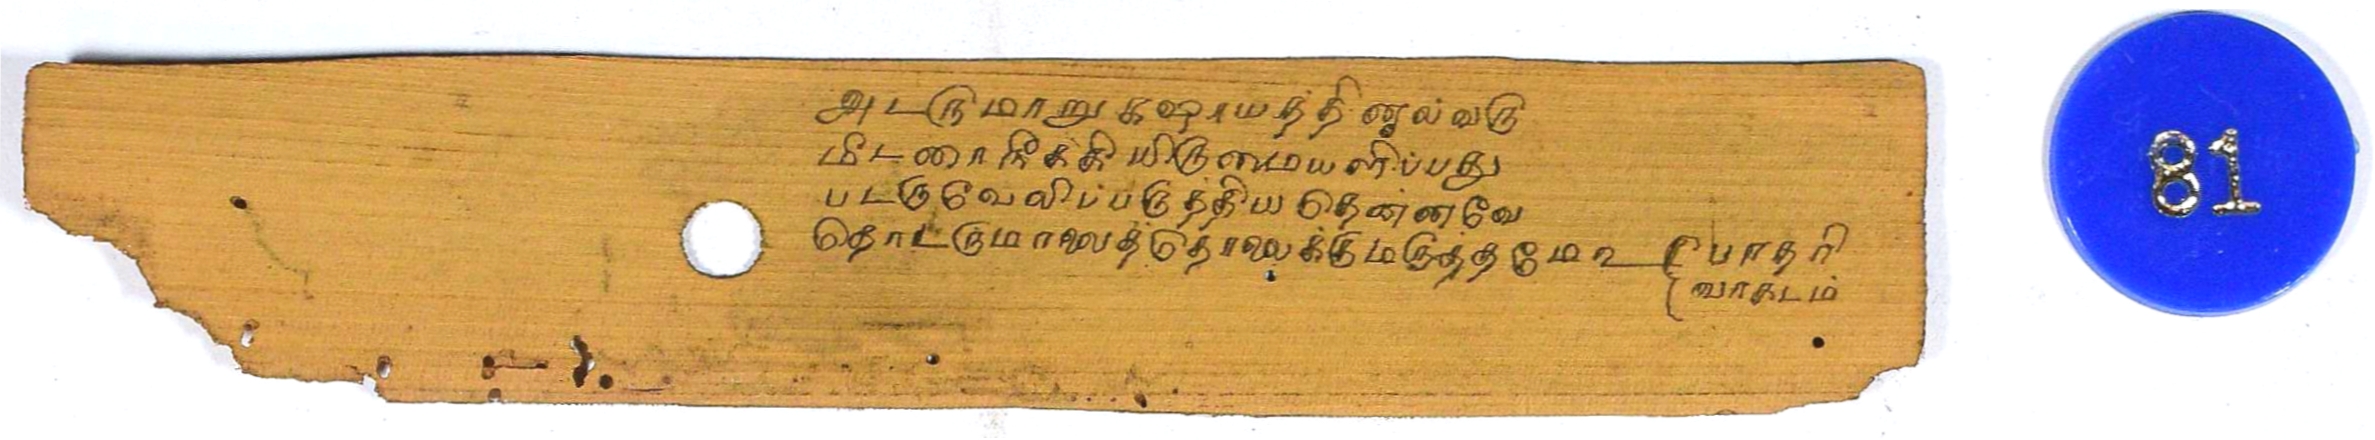 அடருமாறுகஷாயத்தினால்வரு
மிடரை நீக்கி யிருமையளிப்பது
படருவேலிப்படுத்தியதென்னவே
தொடருமாலைத்தொலைக்குமருத்தமே உ பாதரி
வாகடம்
81